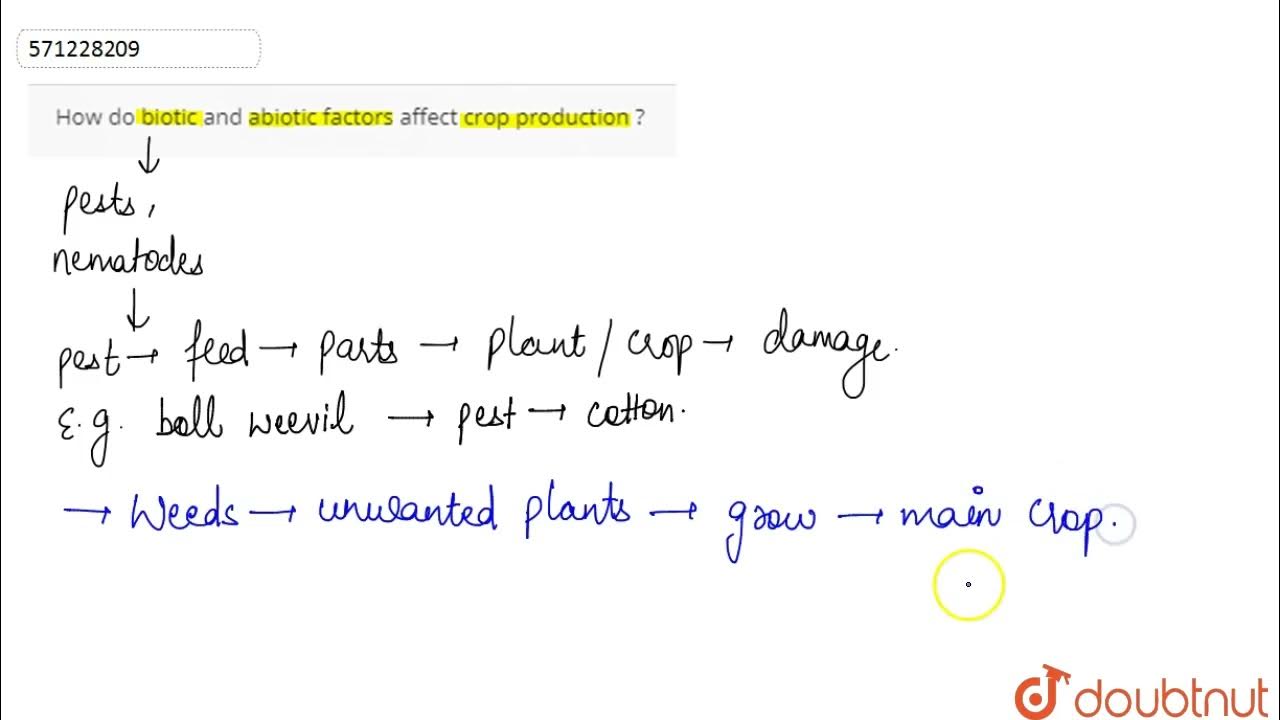 571228209
How do biotic and abiotic factors affect crop production ?
↓
pests,
nematodes
↓
pest → feed → parts → plant / crop → damage.
E.g. boll weevil → pest → cotton.
→ Weeds → unwanted plants → grow → main crop.
doubtnut